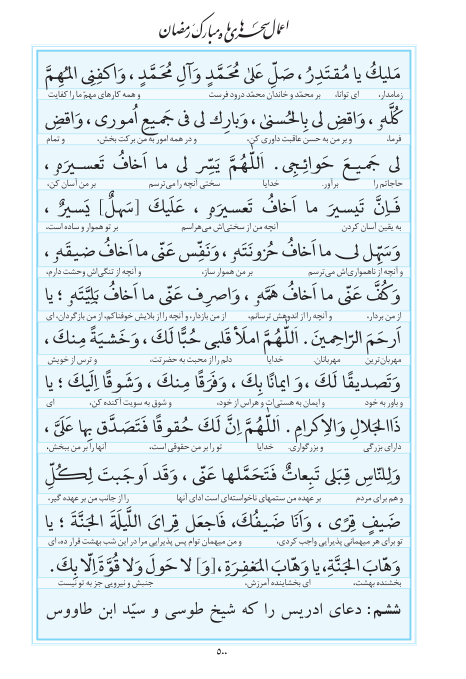 اعمال سحرهای ماه مبارک رمضان
مَليكُ يا مُقتَدِرُ، صَلِّ عَلىٰ مُحَمَّدٍ وَآلِ مُحَمَّدٍ، وَاكفِنِی المُهِمَّ
زمامدار، ای توانا، بر محمّد و خاندان محمّد درود فرست و همه کارهای مهم ما را کفایت
كُلَّهُ، وَاقضِ لی بِالحُسنىٰ، وَبارِك لی فی جَميعِ اُموری، وَاقضِ
فرما، و بر من به حسن عاقبت داوری کن، و در همه امور به من برکت بخش، و تمام
لی جَميعَ حَوائِجی. اَللّٰهُمَّ يَسِّر لی ما اَخافُ تَعسيرَهُ،
حاجاتم را برآور. خدایا سختی آنچه را می‌ترسم بر من آسان کن،
فَاِنَّ تَيسيرَ ما اَخافُ تَعسيرَهُ، عَلَيكَ [سَهلٌ] يَسيرٌ،
به یقین آسان کردن آنچه من از سختی‌اش می‌هراسم بر تو هموار و ساده است،
وَسَهِّل لی ما اَخافُ حُزونَتَهُ، وَنَفِّس عَنّی ما اَخافُ ضيقَهُ،
و آنچه از ناهمواری‌اش می‌ترسم بر من هموار ساز، و آنچه از تنگی‌اش وحشت دارم،
وَكُفَّ عَنّی ما اَخافُ هَمَّهُ، وَاصرِف عَنّی ما اَخافُ بَلِيَّتَهُ؛ يا
از من بردار، و آنچه را از اندوهش ترسانم، از من بازدار، و آنچه را از بلایش خوفناکم، از من بازگردان، ای
اَرحَمَ الرّاحِمينَ. اَللّٰهُمَّ املَأ قَلبی حُبًّا لَكَ، وَخَشيَةً مِنكَ،
مهربان‌ترین مهربانان. خدایا دلم را از محبت به حضرتت، و ترس از خویش
وَتَصديقًا لَكَ، وَايمانًا بِكَ، وَفَرَقًا مِنكَ، وَشَوقًا اِلَيكَ؛ يا
و باور به خود و ایمان به هستی‌ات و هراس از خود، و شوق به سویت آکنده کن، ای
ذَا الجَلالِ وَالاِكرامِ. اَللّٰهُمَّ اِنَّ لَكَ حُقوقًا فَتَصَدَّق بِها عَلَیَّ،
دارای بزرگی و بزرگواری. خدایا تو را بر من حقوقی است، آنها را بر من ببخش،
وَلِلنّاسِ قِبَلی تَبِعاتٌ فَتَحَمَّلها عَنّی، وَقَد اَوجَبتَ لِكُلِّ
و هم برای مردم بر عهده من ستمهای ناخواسته‌ای است ادای آنها را از جانب من بر عهده گیر،
ضَيفٍ قِرًى، وَاَنَا ضَيفُكَ، فَاجعَل قِرایَ اللَّيلَةَ الجَنَّةَ؛ يا
تو برای هر میهمانی پذیرایی واجب کردی، و من میهمان توام پس پذیرایی مرا در این شب بهشت قرار ده، ای
وَهّابَ الجَنَّةِ، يا وَهّابَ المَغفِرَةِ، [وَ] لا حَولَ وَلا قُوَّةَ اِلّا بِكَ.
بخشنده بهشت، ای بخشاینده آمرزش، جنبش و نیرویی جز به تو نیست
ششم: دعای ادریس را که شیخ طوسی و سیّد ابن طاووس
٥٠٠